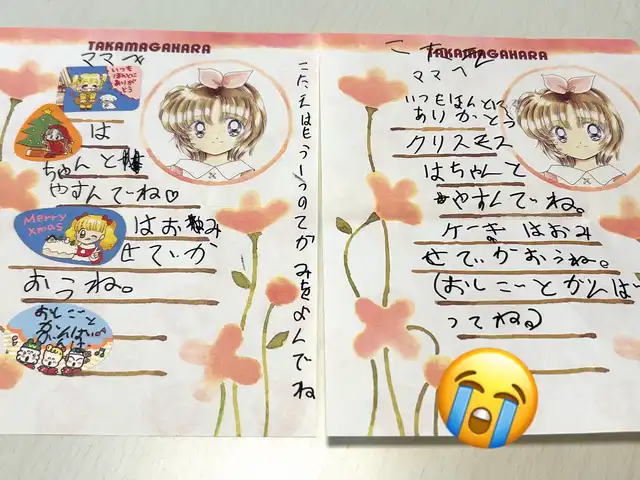 TAKAMAGAHARA
ママへ
いつも
ほんとに
ありが
とう
は
ちゃんと
やすんでね♡
Merry
Xmas
はお み
せでいか
おうね。
おしごと
がんば
こたえはもう一つのてがみをよんでね
TAKAMAGAHARA
ママへ
いつもほんとに
ありがとう
クリスマス
はちゃんと
やすんでいね。
ケーキ はおみ
せでいかおうね。
(おしごとがんば
ってねる)